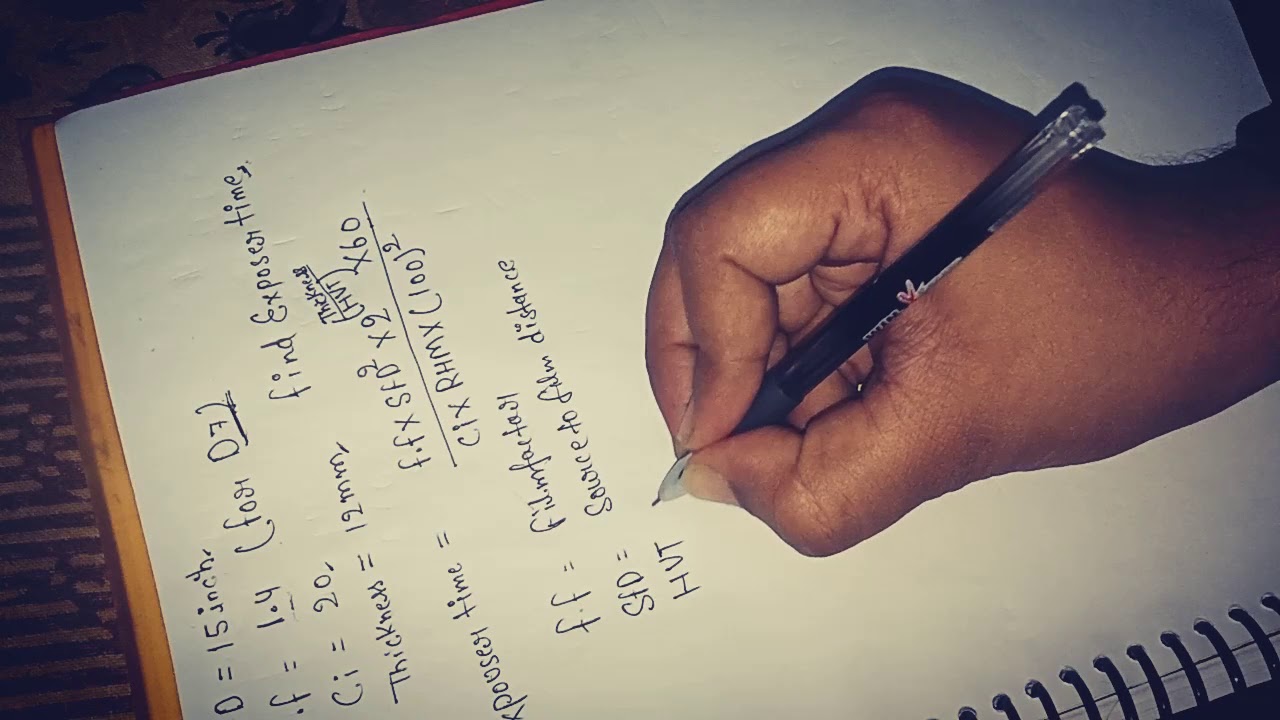 D = 15 inch,
.f = 1.4 (for D7)
Ci = 20,
find Exposer time,
Thickness = 12mm,
Exposer time = f.f x SfD² x 2^(Thickness/HVT) x60
Ci x RHM x (100)²
f.f = film factor
SfD = Source to film distance
HVT